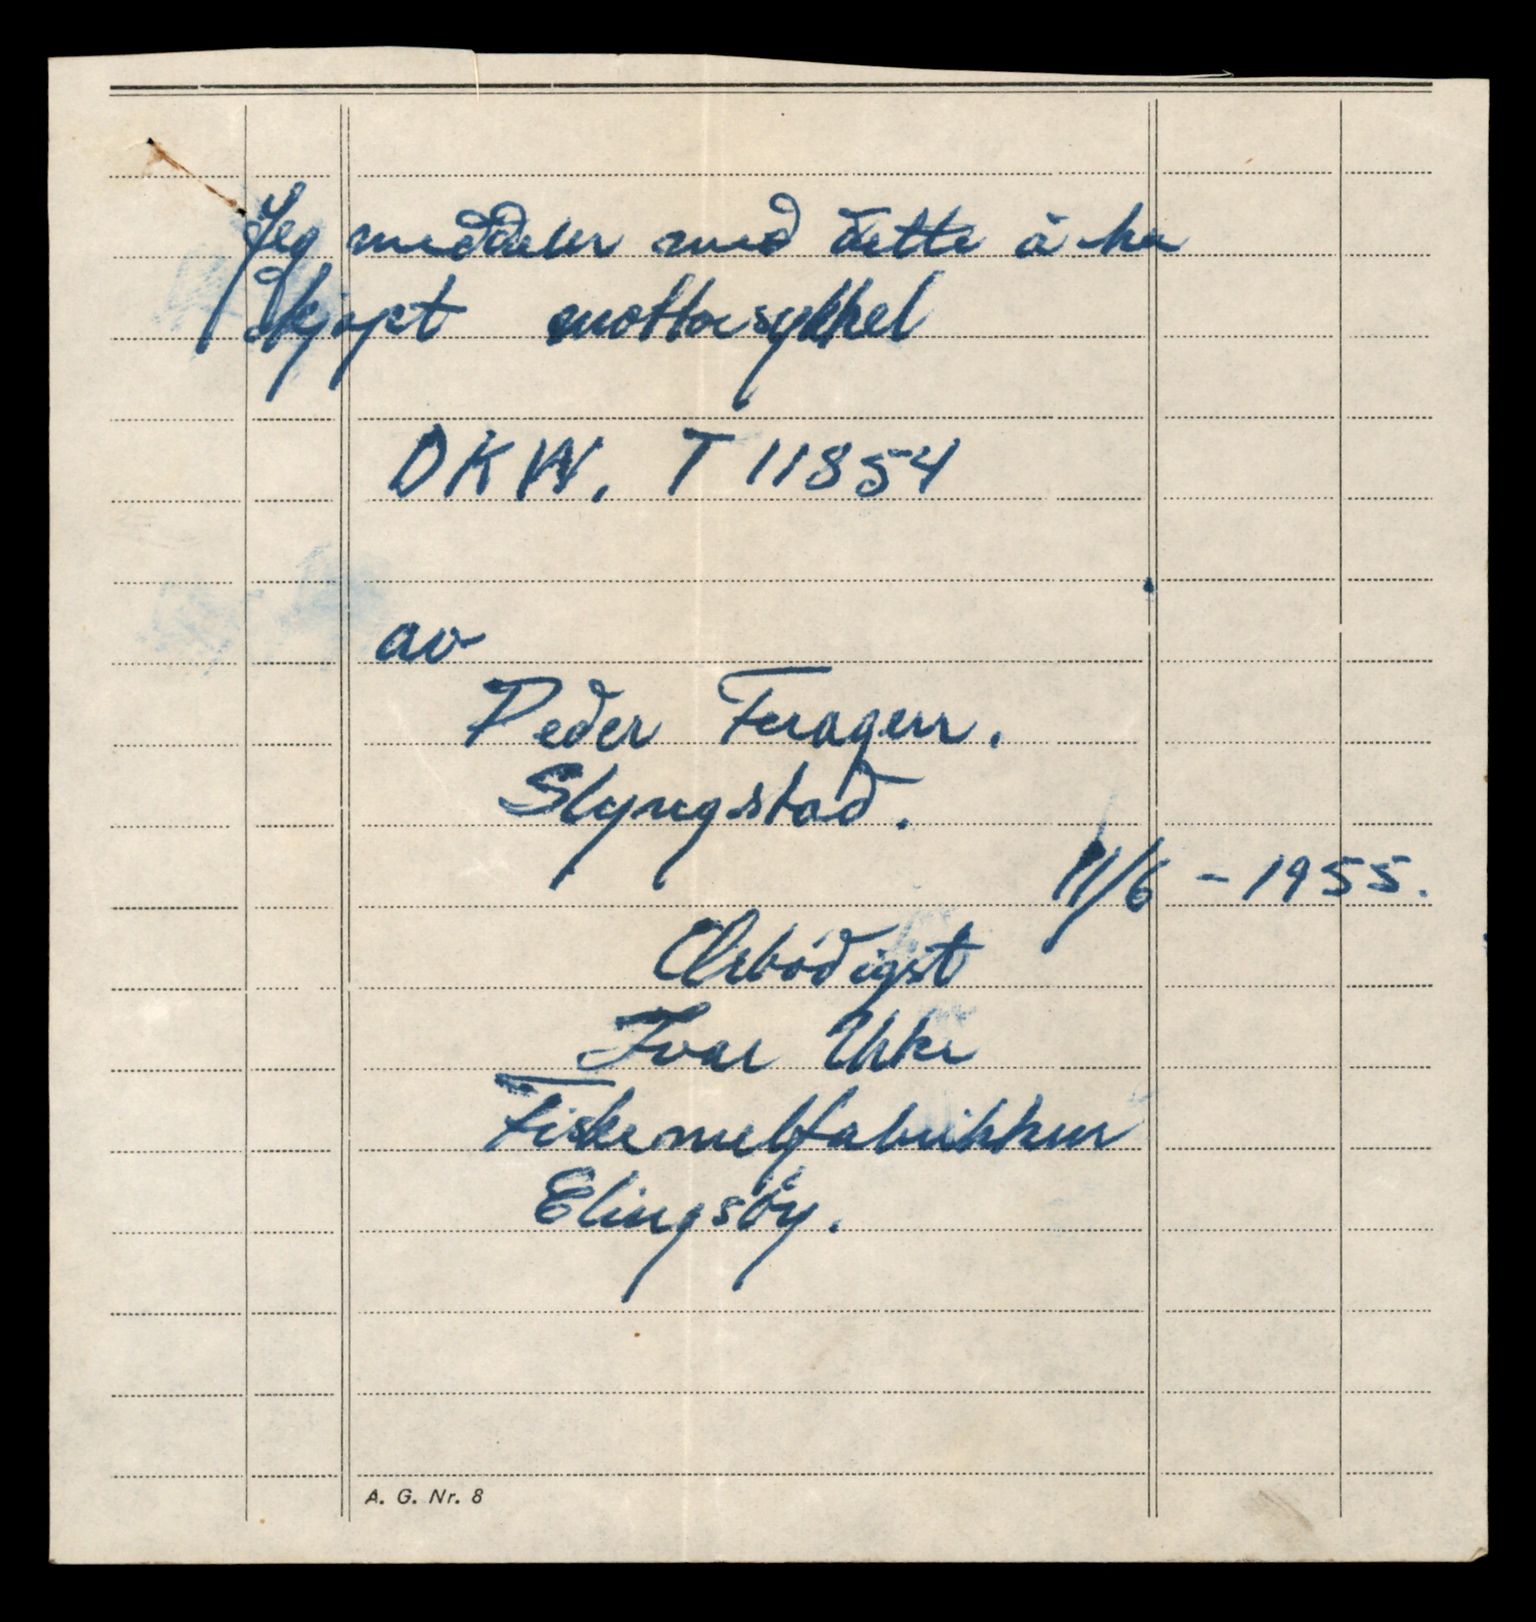 Jeg meddeler med dette å ha
kjøpt mottorsykkel
DKW. T 11854
av
Peder
Slyngstad.
11/6 - 1955.
Ærbødigst
Ivar
Fiskemelfabrikken
Elingsöy.
A. G. Nr. 8